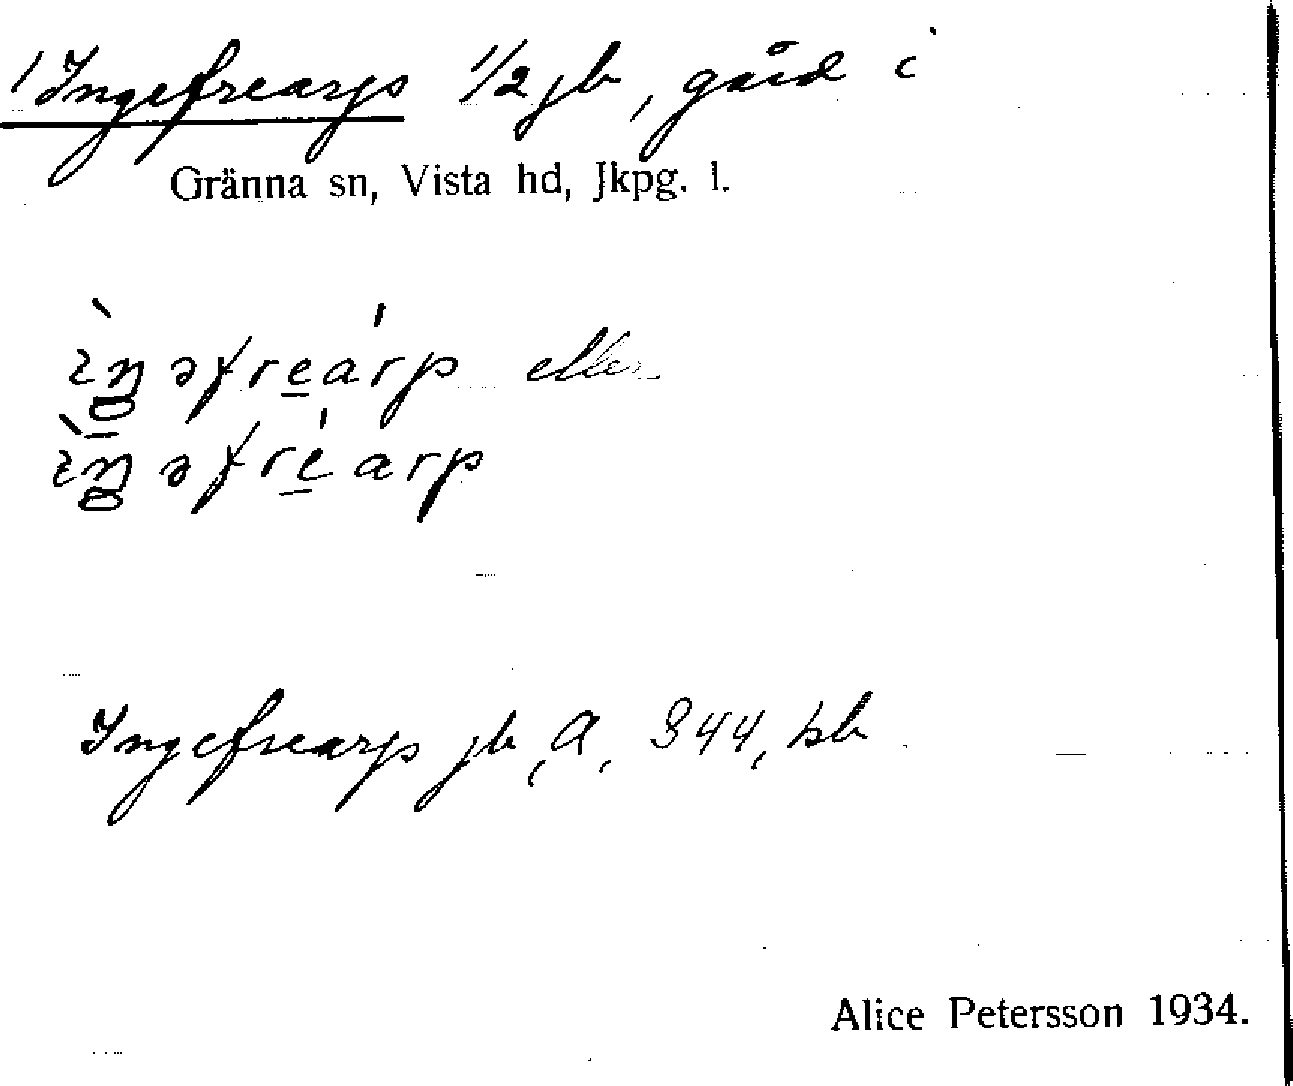 /Ingefrearp 1/2 jb, gård i
Gränna sn, Vista hd, Jkpg. l.
ìŋəfreárp eller
ìŋəfréarp
Ingefrearp jb, A, 344, kb
Alice Petersson 1934.